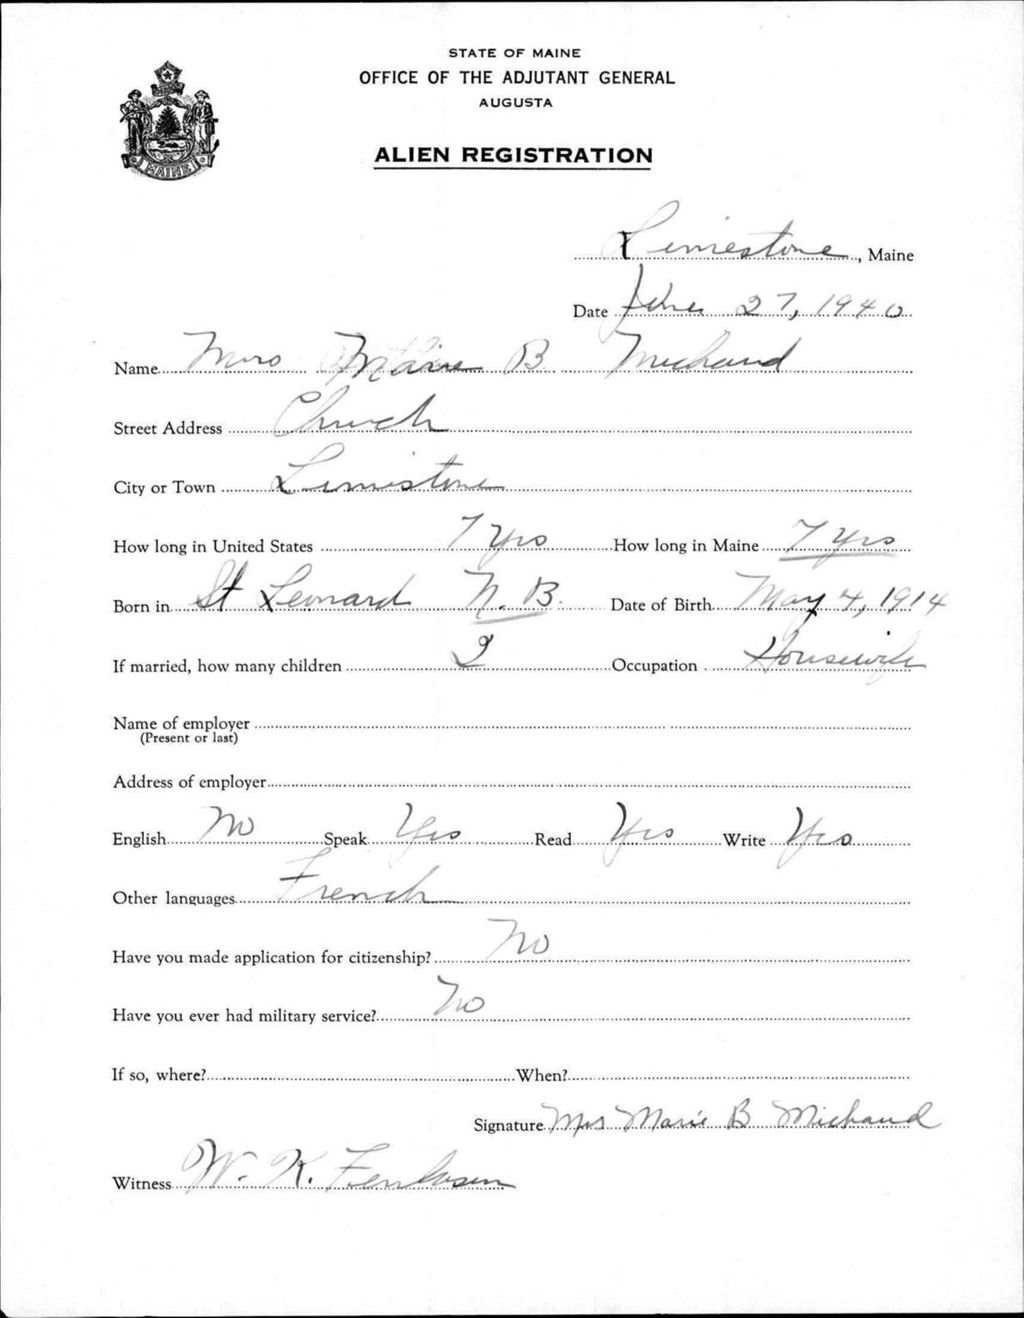 STATE OF MAINE
OFFICE OF THE ADJUTANT GENERAL
AUGUSTA
ALIEN REGISTRATION
MAINE
Limestone, Maine
Date June 27, 1940
Name Mrs Marie B. Michaud
Street Address Church
City or Town Limestone
How long in United States 7 yrs How long in Maine 7 yrs
Born in St Leonard N.B. Date of Birth May 4, 1914
If married, how many children 2 Occupation Housewife
Name of employer
(Present or last)
Address of employer
English No Speak Yes Read Yes Write Yes
Other languages French
Have you made application for citizenship? No
Have you ever had military service? No
If so, where? When?
Signature Mrs Marie B Michaud
Witness W. K.